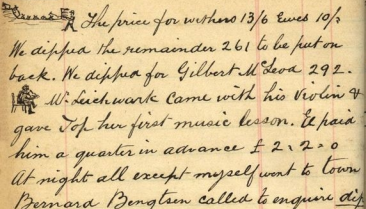 The price for withers 13/6 Ewes 10/=
We dipped the remainder 261 to be put on
back. We dipped for Gilbert McLeod 292.
Mr Lieckwark came with his Violin &
gave Top her first music lesson. El paid
him a quarter in advance £ 2 " 2 = 0
At night all except myself went to town
Bernard Bengtsen called to enquire dip